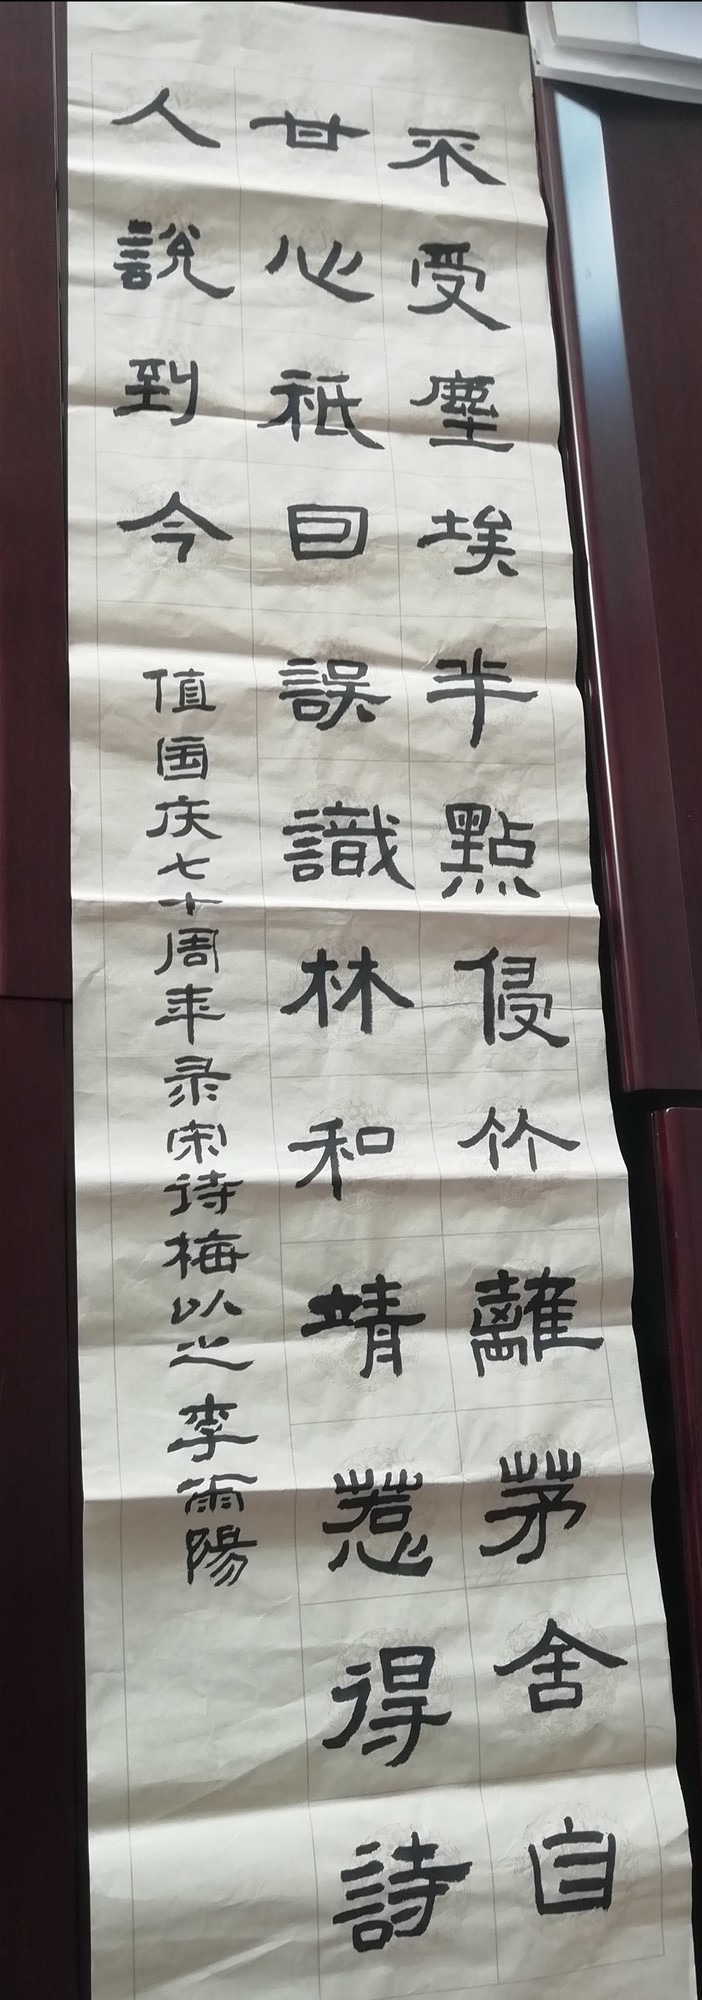 不受塵埃半點侵竹離茅舍自
甘心祇曰誤識林和靖惹得詩
人說到今
值国庆七十周年录宋诗梅以之李雨陽